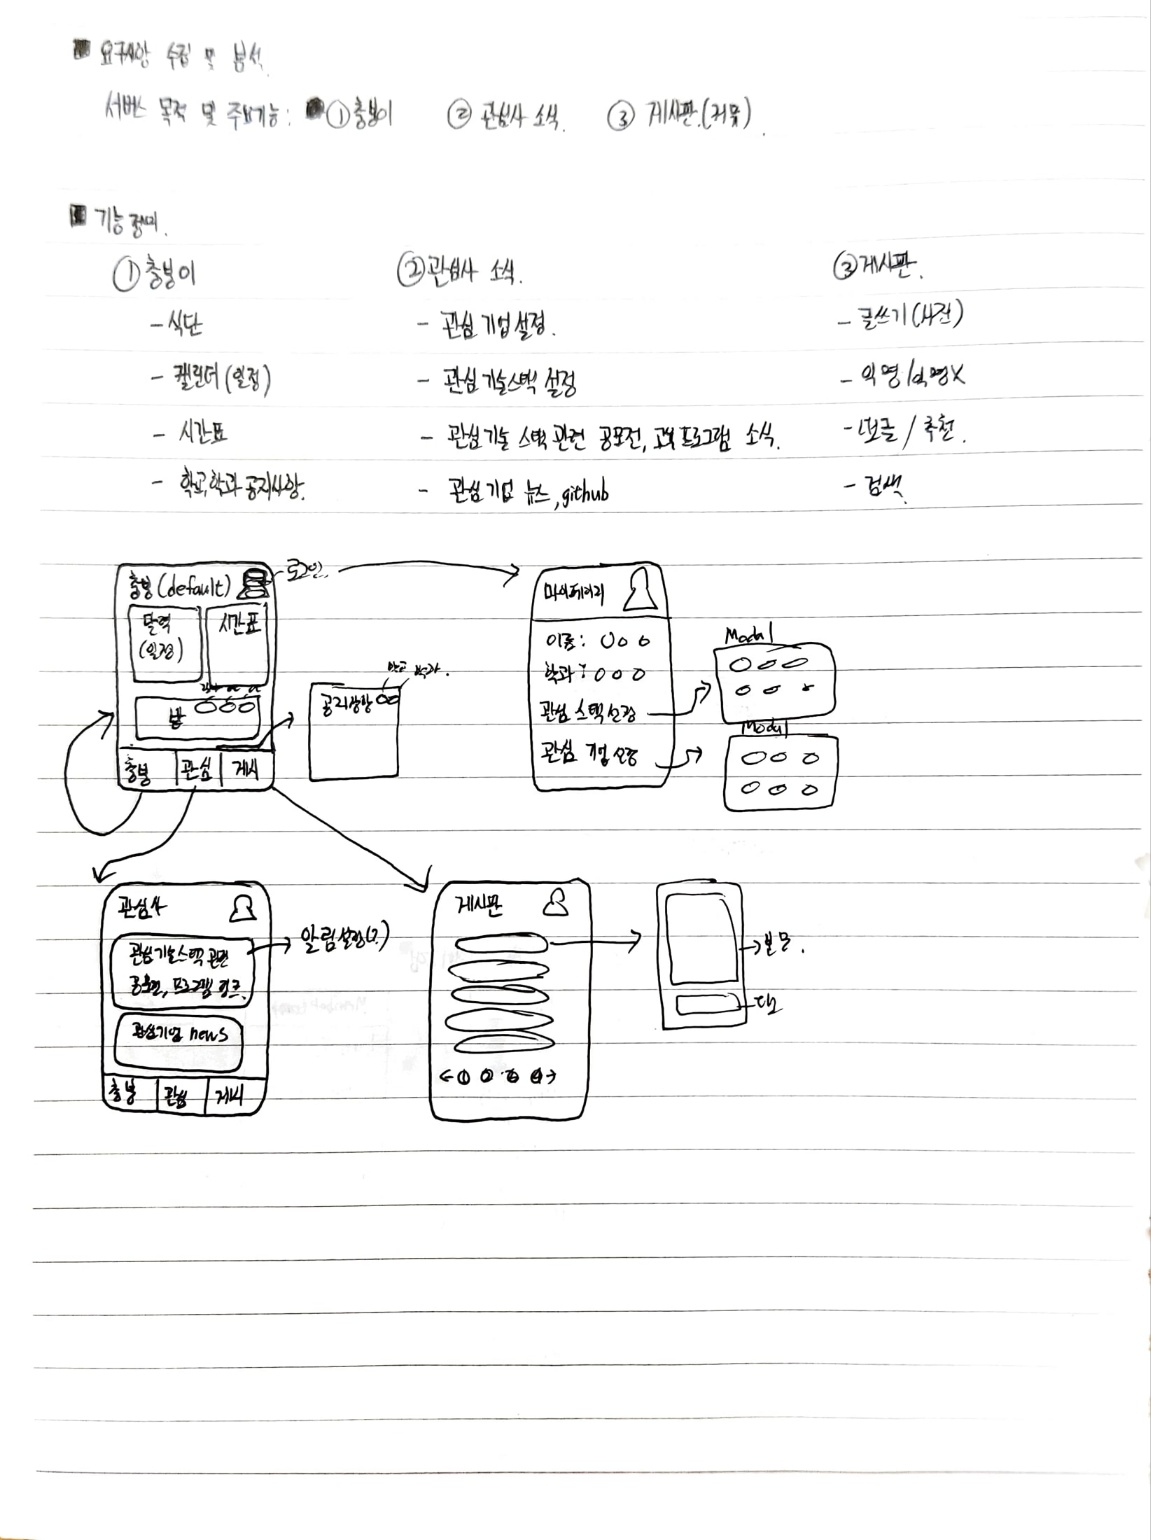 요구사항 수집 및 분석.
서비스 목적 및 주요기능: ① 충붕이 ② 관심사 소식. ③ 게시판.(커뮻)
기능 정의.
① 충붕이
- 식단
- 캘린더 (일정)
- 시간표
- 학교,학과 공지사항.
② 관심사 소식.
- 관심 기업 설정.
- 관심 기술스택 설정
- 관심 기술 스택 관련 공모전, 교육 프로그램 소식.
- 관심 기업 뉴스, github
③ 게시판.
- 글쓰기 (사진)
- 익명/익명X
- 댓글 / 추천.
- 검색.
충붕 (default)
로그인.
달력
(일정)
시간표
밥
충붕 관심 게시
공지사항
학교 학과.
마이페이지
이름: ○○○
학과: ○○○
관심 스택 설정
관심 기업 설정
Modal
Modal
관심사
관심 기술스택 관련
공모전, 프로그램 링크.
알림설정(?)
관심기업 news
충붕 관심 게시
게시판
← ① ② ③ ④ →
본문.
댓글